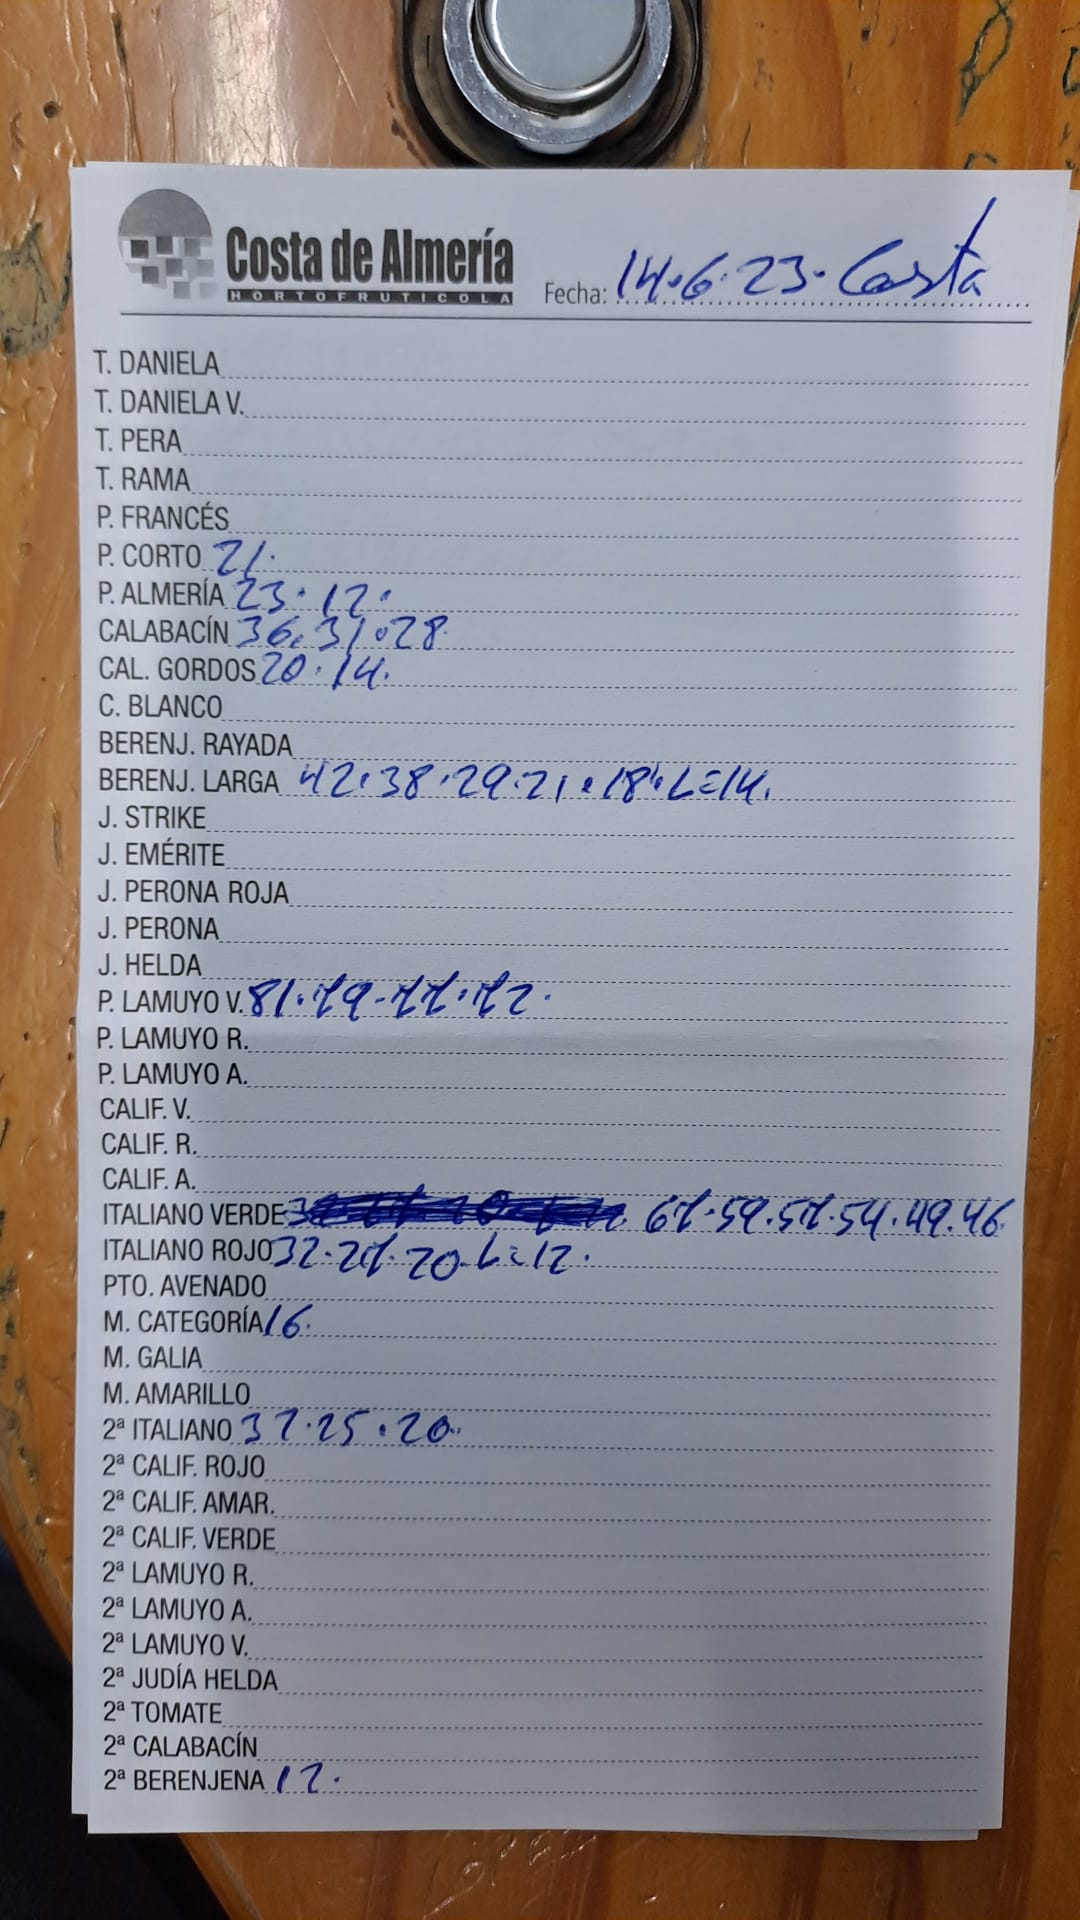 Costa de Almería
HORTOFRUTICOLA
Fecha: 14.6.23. Costa
T. DANIELA
T. DANIELA V.
T. PERA
T. RAMA
P. FRANCÉS
P. CORTO 21.
P. ALMERÍA 23.12.
CALABACÍN 36.31.28
CAL. GORDOS 20.14.
C. BLANCO
BERENJ. RAYADA
BERENJ. LARGA 42.38.29.21.18.L=14.
J. STRIKE
J. EMÉRITE
J. PERONA ROJA
J. PERONA
J. HELDA
P. LAMUYO V. 81.79-77.72.
P. LAMUYO R.
P. LAMUYO A.
CALIF. V.
CALIF. R.
CALIF. A.
ITALIANO VERDE 67.59.57.54.49.46.
ITALIANO ROJO 32.27.20.L=12.
PTO. AVENADO
M. CATEGORÍA 16.
M. GALIA
M. AMARILLO
2ª ITALIANO 32.25.20.
2ª CALIF. ROJO
2ª CALIF. AMAR.
2ª CALIF. VERDE
2ª LAMUYO R.
2ª LAMUYO A.
2ª LAMUYO V.
2ª JUDÍA HELDA
2ª TOMATE
2ª CALABACÍN
2ª BERENJENA 12.